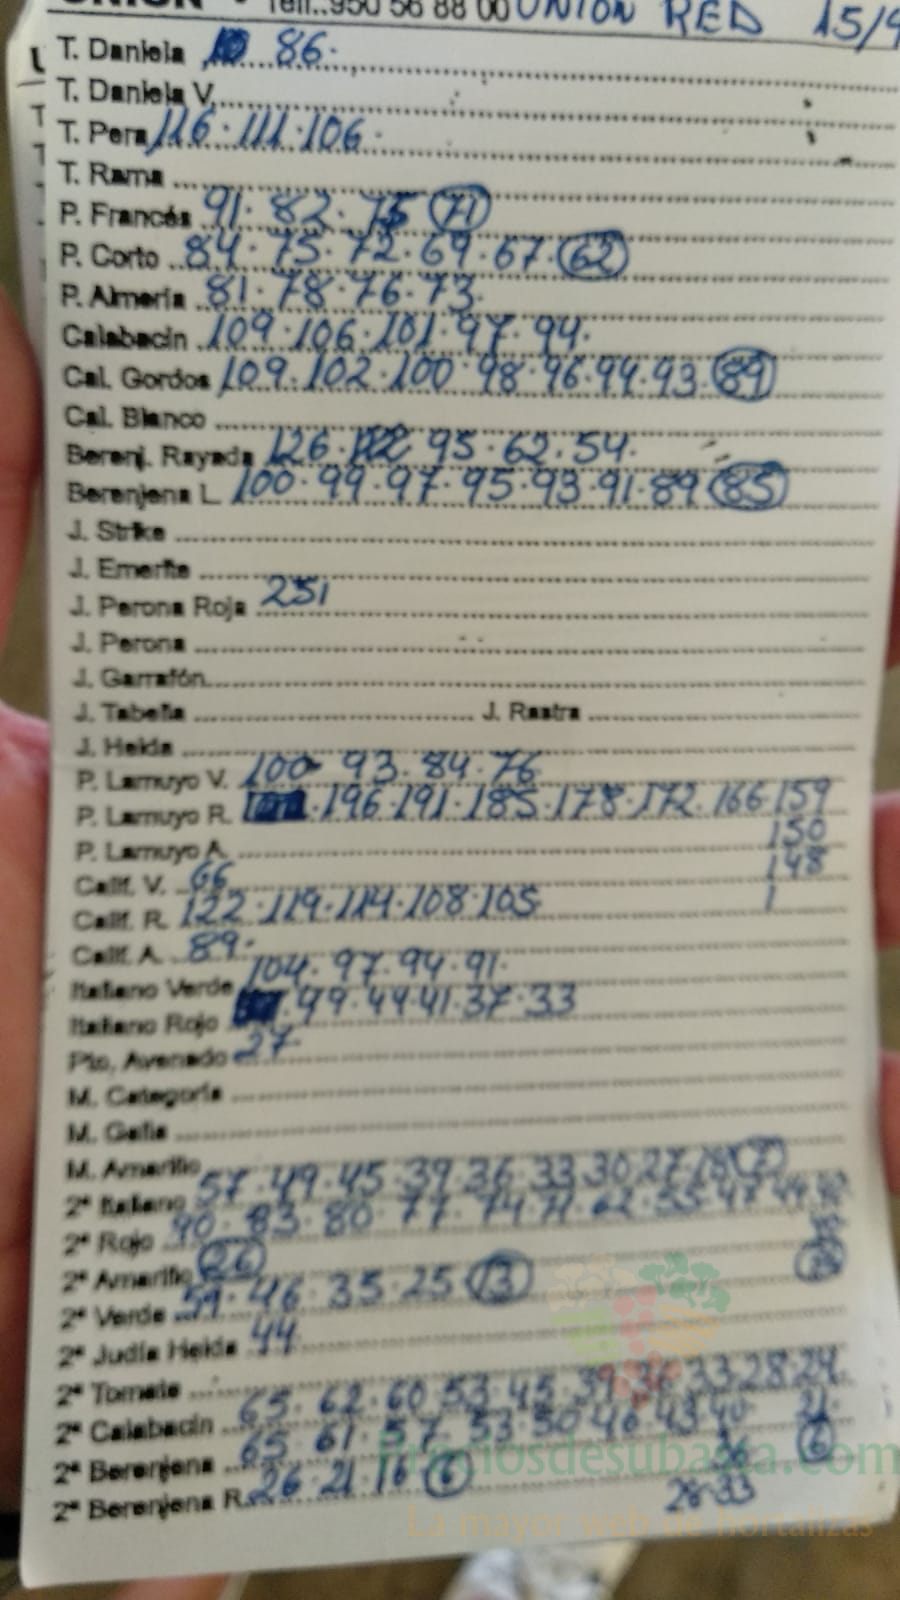 UNION Telf.:950 56 88 00 UNION RED 15/4
T. Daniela 86.
T. Daniela V.
T. Pera 116.111.106.
T. Rama
P. Francés 91.82.75 71
P. Corto 84.75.72.69.67.62
P. Almería 81.78.76.73.
Calabacin 109.106.101.97.94.
Cal. Gordos 109.102.100.98.96.94.93.89
Cal. Blanco
Berenj. Rayada 126. 95.62.54.
Berenjena L. 100.99.97.95.93.91.89 85
J. Strike
J. Emerite
J. Perona Roja 251
J. Perona
J. Garrafón
J. Tabella J. Rastra
J. Helda
P. Lamuyo V. 100 93.84.76
P. Lamuyo R. .196.191.185.178.172.166.159
P. Lamuyo A. 150
Calif. V. 66 148
Calif. R. 122.119.114.108.105 1
Calif. A. 89.
Italiano Verde 104.97.94.91.
Italiano Rojo .99.44.41.37.33
Pto. Asurado 27
M. Categoría
M. Galia
M. Amarillo
2ª Italiano 57.49.45.39.36.33.30.27.18 7
2ª Rojo 90.83.80.77.74.71.62.55.47
2ª Amarillo 26
2ª Verde 59.46.35.25 13
2ª Judía Helda 44
2ª Tomate
2ª Calabacin 65.62.60.53.45.39.36.33.28.24.
2ª Berenjena 65.61.57.53.50.46.43.40 21. 6
2ª Berenjena R. 26.21.16 6
28.33
Preciosdesubasta.com
La mayor web de hortalizas